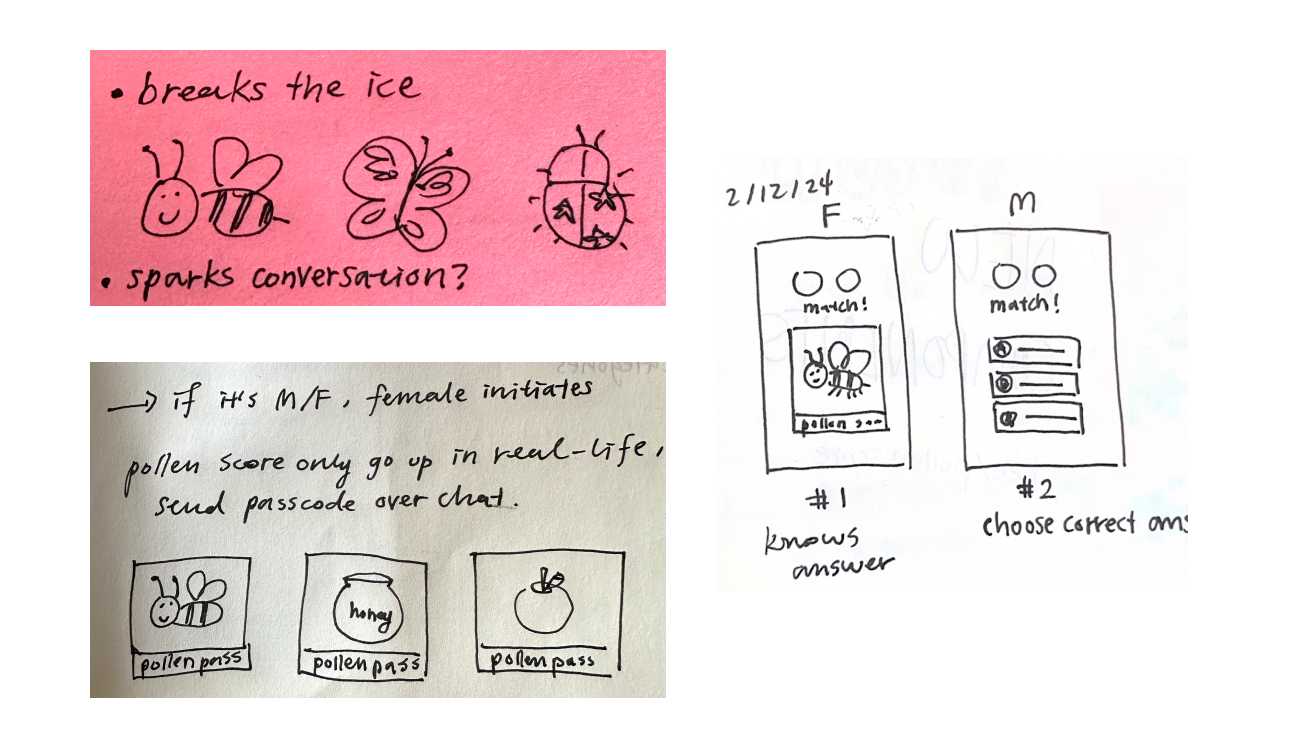 • breaks the ice
• sparks conversation?
→ if it's M/F, female initiates
pollen score only go up in real-life,
send passcode over chat.
honey
pollen pass
pollen pass
pollen pass
2/12/24
F
M
match!
match!
A
B
pollen
#1
#2
knows
answer
choose correct ans